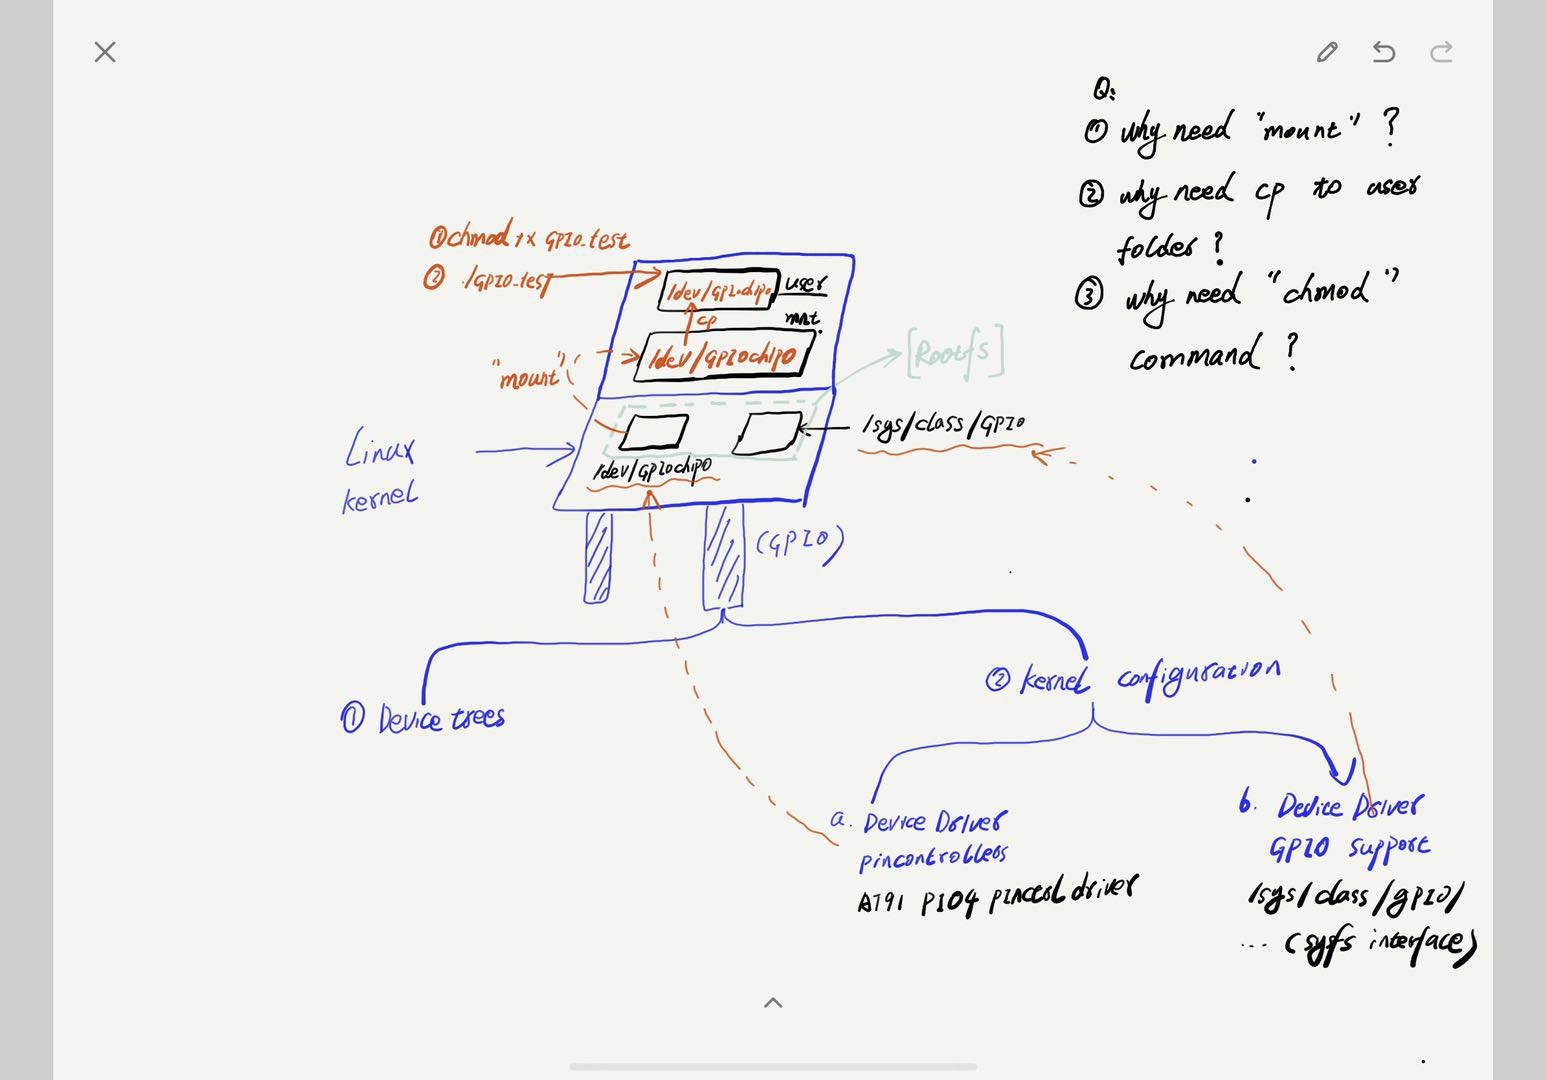 Q:
① why need "mount" ?
② why need cp to user
folder ?
③ why need "chmod"
command ?
① chmod +x GPIO_test
② ./GPIO_test
/dev/GPIOchip0
user
cp
mnt.
"mount"
/dev/GPIOchip0
[Rootfs]
/sys/class/GPIO
Linux
kernel
/dev/GPIOchip0
(GPIO)
① Device trees
② kernel configuration
a. Device Driver
pincontrollers
AT91 PIO4 pinctrl driver
b. Device Driver
GPIO support
/sys/class/gpio/
... (sysfs interface)